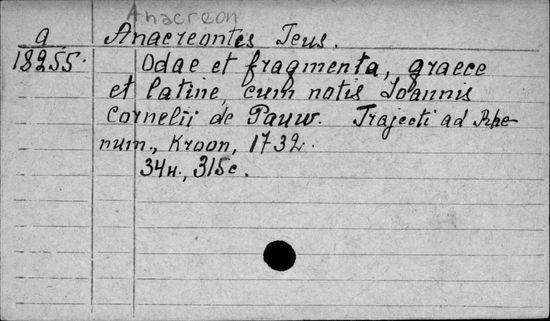 Anacreon
a Anacreontes Teus.
18255. Odae et fragmenta, graece
et latine, cum notis Ioannis
Cornelii de Pauw. Trajecti ad Rhe-
num., Kroon, 1732.
34н., 315с.